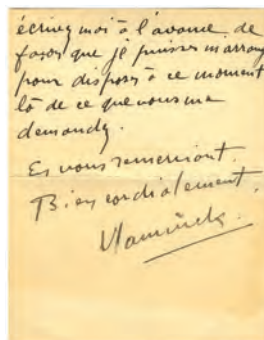 écrivez moi à l'avance de
façon que je puisse m'arranger
pour disposer à ce moment
là de ce que vous me
demandez.
En vous remerciant.
Bien cordialement,
Vlaminck.